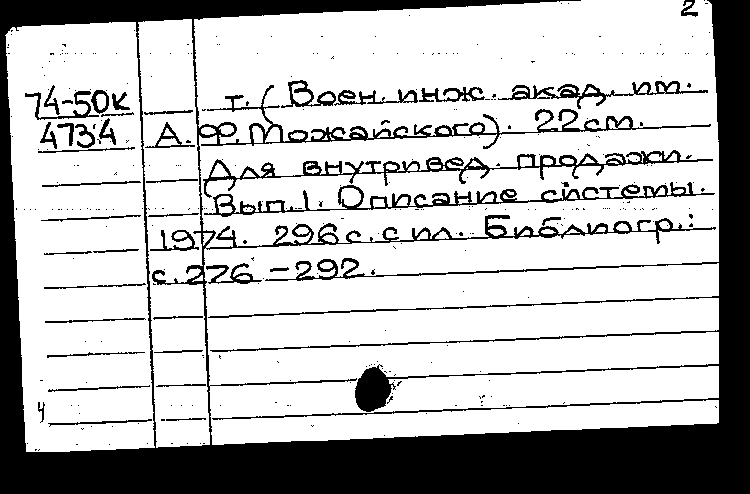 2
74-50к т. (Воен. инж. акад. им.
4734 А.Ф. Можайского). 22см.
Для внутривед. продажи.
Вып.1. Описание системы.
1974. 296 с. с ил. Библиогр.:
с. 276 - 292.
ч